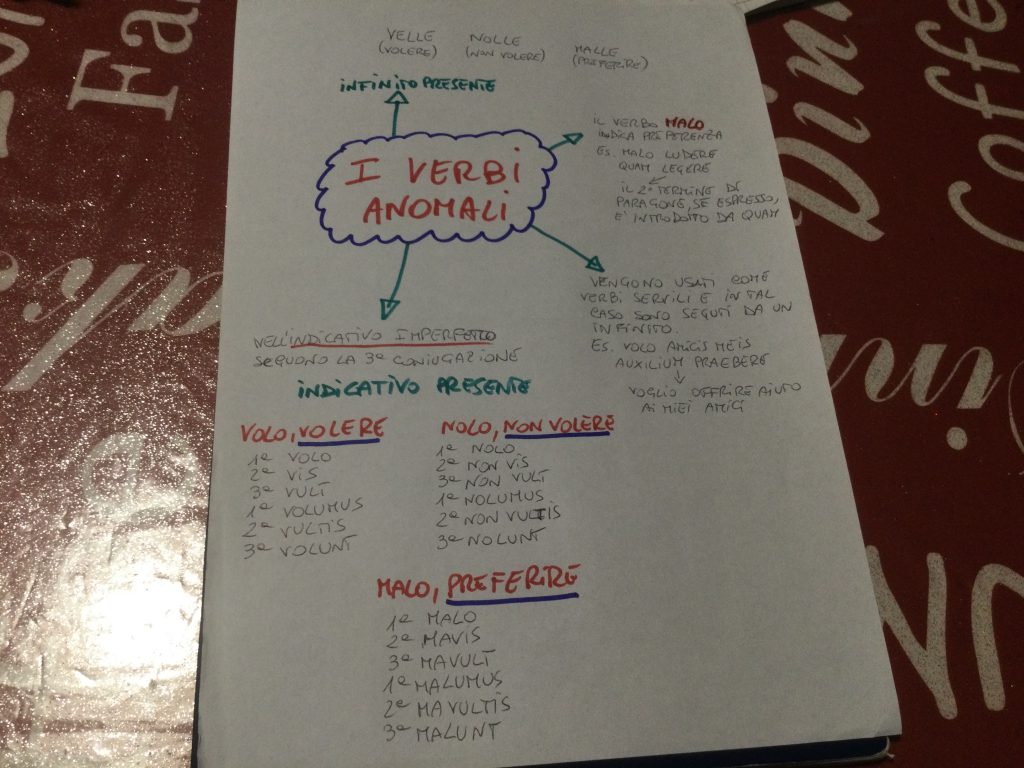 VELLE NOLLE MALLE
(VOLERE) (NON VOLERE) (PREFERIRE)
INFINITO PRESENTE
I VERBI
ANOMALI
IL VERBO MALO
INDICA PREFERENZA
ES. MALO LUDERE
QUAM LEGERE
IL 2º TERMINE DI
PARAGONE, SE ESPRESSO,
E' INTRODOTTO DA QUAM
VENGONO USATI COME
VERBI SERVILI E IN TAL
CASO SONO SEGUITI DA UN
INFINITO.
ES. VOLO AMICIS MEIS
AUXILIUM PRAEBERE
VOGLIO OFFRIRE AIUTO
AI MIEI AMICI
NELL'INDICATIVO IMPERFETTO
SEGUONO LA 3ª CONIUGAZIONE
INDICATIVO PRESENTE
VOLO, VOLERE
1ª VOLO
2ª VIS
3ª VULT
1ª VOLUMUS
2ª VULTIS
3ª VOLUNT
NOLO, NON VOLERE
1ª NOLO
2ª NON VIS
3ª NON VULT
1ª NOLUMUS
2ª NON VULTIS
3ª NOLUNT
MALO, PREFERIRE
1ª MALO
2ª MAVIS
3ª MAVULT
1ª MALUMUS
2ª MAVULTIS
3ª MALUNT
Coffe